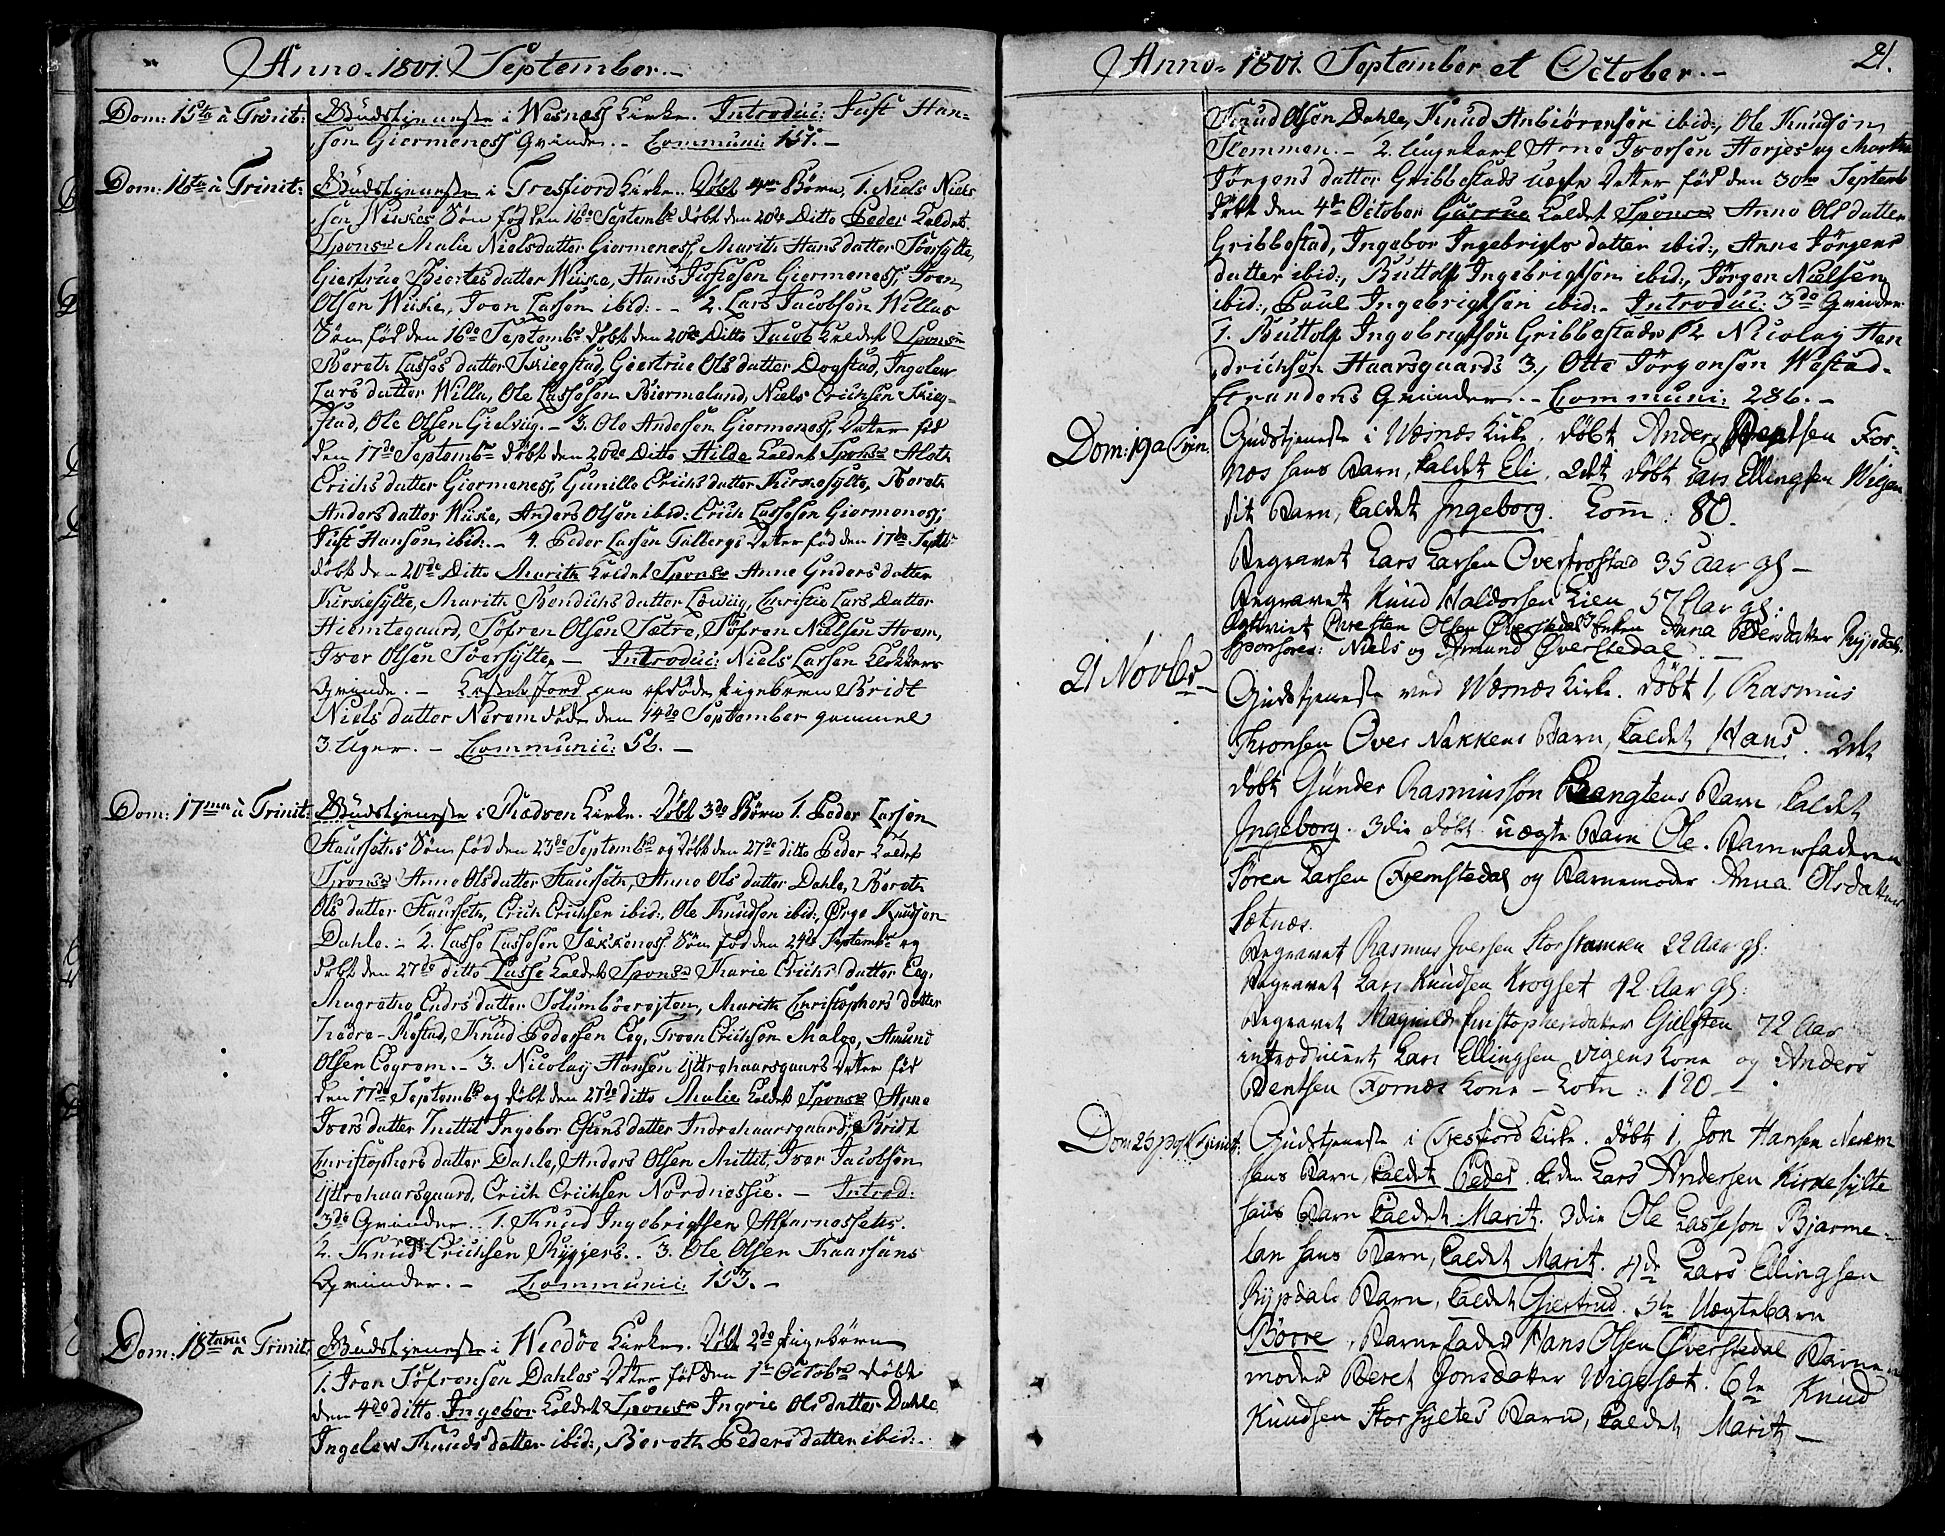 Anno 1801. September.
Dom: 15ta à Trinit: Gudstjeneste i Wesnæss Kirke. Introduc: Just Han-
sen Giermeness Qvinde. - Communi: 151. -
Dom: 16ta à Trinit: Gudstjeneste i Tresfiord Kirke. Døbt 4re Børn, 1. Niels Niels
sen Wiskes Søn fød den 16de Septembr døbt den 20de Ditto Peder kaldet
Spons: Malie Nielsdatter Giermeness, Marith Hansdatter Tversylte,
Giertrue Biertesdatter Wiske, Hans Justesen Giermeness, Iver
Olsen Wiske, Iver Lassen ibid: - 2. Lars Jacobsen Willas
Søn fød den 16de Septembr døbt den 20de Ditto Jacob kaldet Spons:
Bereth Lasses datter Skiegstad, Giertrue Ols datter Dogstad, Ingelev
Lars datter Willa, Ole Lassesen Biermeland, Niels Erichsen Skieg-
stad, Ole Olsen Gielvig. - 3. Ole Andersen Giermeness, Datter fød
den 17de Septembr døbt den 20de Ditto Hilde kaldet Spons:
Erichs datter Giermeness, Gunille Erichsdatter Kirkesylte, Bereth
Anders datter Wiske, Anders Olsen ibid: Erich Lassesen Giermeness,
Just Hansen ibid: - 4. Peder Lassen Talbergs Datter fød den 17de Septbr
døbt den 20de Ditto Marith kaldet Spons: Anne Gnders datter
Kirkesylte, Marith Bendichs datter Løwiig, Christie Lars Datter
Hiemtegaard, Søfren Olsen Sætre, Søfren Nielsen Hoem,
Iver Olsen Tversylte. - Introduc: Niels Larsen Klokkers
Qvinde. - Kastet Jord paa afdøde Pigebarn Bridt
Niels datter Nerem døde den 14de September gammel
3 Uger. - Communic: 56. -
Dom: 17ma à Trinit: Gudstjeneste i Rødven Kirke. Døbt 3de Børn 1. Peder Larsen
Staurseths Søn fød den 23de Septembr og døbt den 27de ditto Peder kaldet
Spons: Anne Olsdatter Staurseth, Anne Ols datter Dahle, Bereth
Ols datter Staurseth, Erich Erichsen ibid:, Ole Knudsen ibid:, Ørge Knudsen
Dahle. - 2. Lasse Lassesen Sækkeness Søn fød den 24de Septembr og
døbt den 27de ditto Lasse kaldet Spons: Marie Erichs datter Eeg,
Magrethe Endrs datter Solumbøereiten, Marith Christophers datter
Knud Pedersen Eeg, Troen Erichsen Maloe, Amund
Olsen Eegrem. - 3. Nicolay Hansen Ytrehaarsgaars Datter fød
den 17de Septembr og døbt den 27de ditto Malie kaldet Spons: Anne
Ivers datter Mittet Ingebor Estens datter Indrehaarsgaard, Bridt
Christophers datter Dahle, Anders Olsen Mittet, Iver Jacobsen
Ytrehaarsgaard, Erich Erichsen Nordnessie. - Introd:
3de Qvinder. 1. Knud Ingebrigtsen Alfarnessetes.
2. Knud Erichsen Ryggiers. 3. Ole Olsen Kaarsans
Qvinder. - Communic: 153. -
Dom: 18tama à Trinit: Gudstjeneste i Weedøe Kirke. Døbt 2de Pigebørn
1. Iver Søfrensen Dahles Datter fød den 1te Octobr døbt
den 4de ditto Ingebor kaldet Spons: Ingrie Olsdatter Dahle
Ingelew Knuds datter ibid:, Bereth Peders datter ibid:
Anno 1801. September et October. - 21.
Knud Olsen Dahle, Knud Anbiørensen ibid:, Ole Knudsen
Flemmen. - 2. Ungekarl Arne Iversen Herjes og Marthe
Jørgens datter Gribbestads uægte Datter fød den 30te Septemb
døbt den 4de October kaldet Spons: Anne Ols datter
Gribbestad, Ingebor Ingebrigts datter ibid:, Anne Jørgens
datter ibid:, Buttolf Ingebrigtsen ibid:, Jørgen Nielsen
ibid:, Poul Ingebrigtsen ibid:. Introduc: 3de Qvinder
1. Buttolf Ingebrigtsen Gribbestads 2. Nicolay Han
drichsen Haarsgaards 3, Otte Jørgensen Westad-
strandens Qvinder. - Communi: 286. -
Dom: 19 a Trin. Gudstjeneste i Wæsnæs Kirke. døbt Anders Bentsen For-
næs hans Barn, kaldet Eli. 2det døbt Lars Ellingsen Wigen
sit Barn, kaldet Ingeborg. Kom: 80.
Begravet Lars Larsen Overtrostad 35 Aar gl -
Begravet Knud Haldorsen Lien 57 Aar gl:
Copuleret Christen Olsen Øverstedal Enken Anna Pedersdatter Rypdal.
Sponsores: Niels og Asmund Øverstedal. -
21 Novbr - Gudstjeneste ved Wæsnæs Kirke. døbt 1, Rasmus
Thronsen Over Nakkens Barn, kaldet Hans. 2det
døbt Gunder Rasmusson Brangtens Barn, kaldet
Ingeborg. 3die døbt uægte Barn Ole. Barnefaderen
Søren Larsen Fremstedal og Barnemoder Anna Olsdatter
Sætnæs.
Begravet Rasmus Iversen Korstameen 22 Aar gl:
Begravet Lars Knudsen Krogset 12 Aar gl:
Begravet Magnild Kristophersdatter Gulsten 72 Aar
introduceert Lars Ellingsen vigens Kone og Anders
Bentsen Fornæs Kone - Kom: 120 -
Dom 25 post Trinit: Gudstjeneste i Tresfiord Kirke. døbt 1, Jon Hansen Nerem
hans Barn, kaldet Peder. 2 den Lars Andersen Kirkesylte
hans Barn kaldet Marit. 3die Ole Lasseson Bjarme-
lan hans Barn, kaldet Marit. 4de Lars Ellingsen
Rypdals Barn, kaldet Giertrud. 5te Uægtebarn
Børre, Barnefader Hans Olsen Øverstedal Barne
moder Beret Jonsdatter Wigesæt. 6te Knud
Knudsen Storsyltes Barn, kaldet Marit -